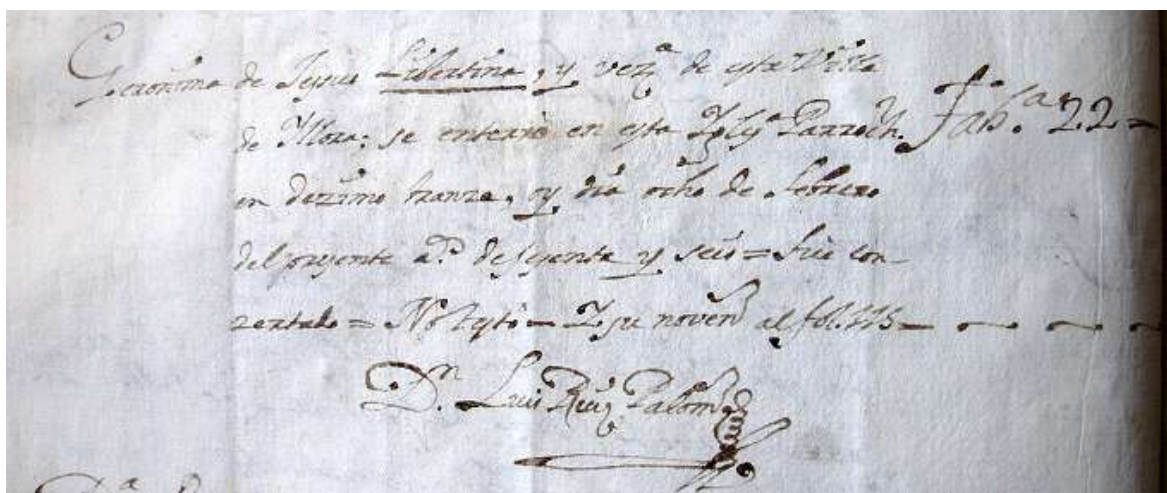 Geronima de Jesus Libertina, y vez.ª de esta Villa
de Illora: se enterró en esta Iglª Parroch.
en dezimo tranze, y dia ocho de febrero
del presente a.º de sesenta y seis = fue con
zertado = No testó = Y su noven.º al fol. 115 =
D.n Luis Ruiz Palom